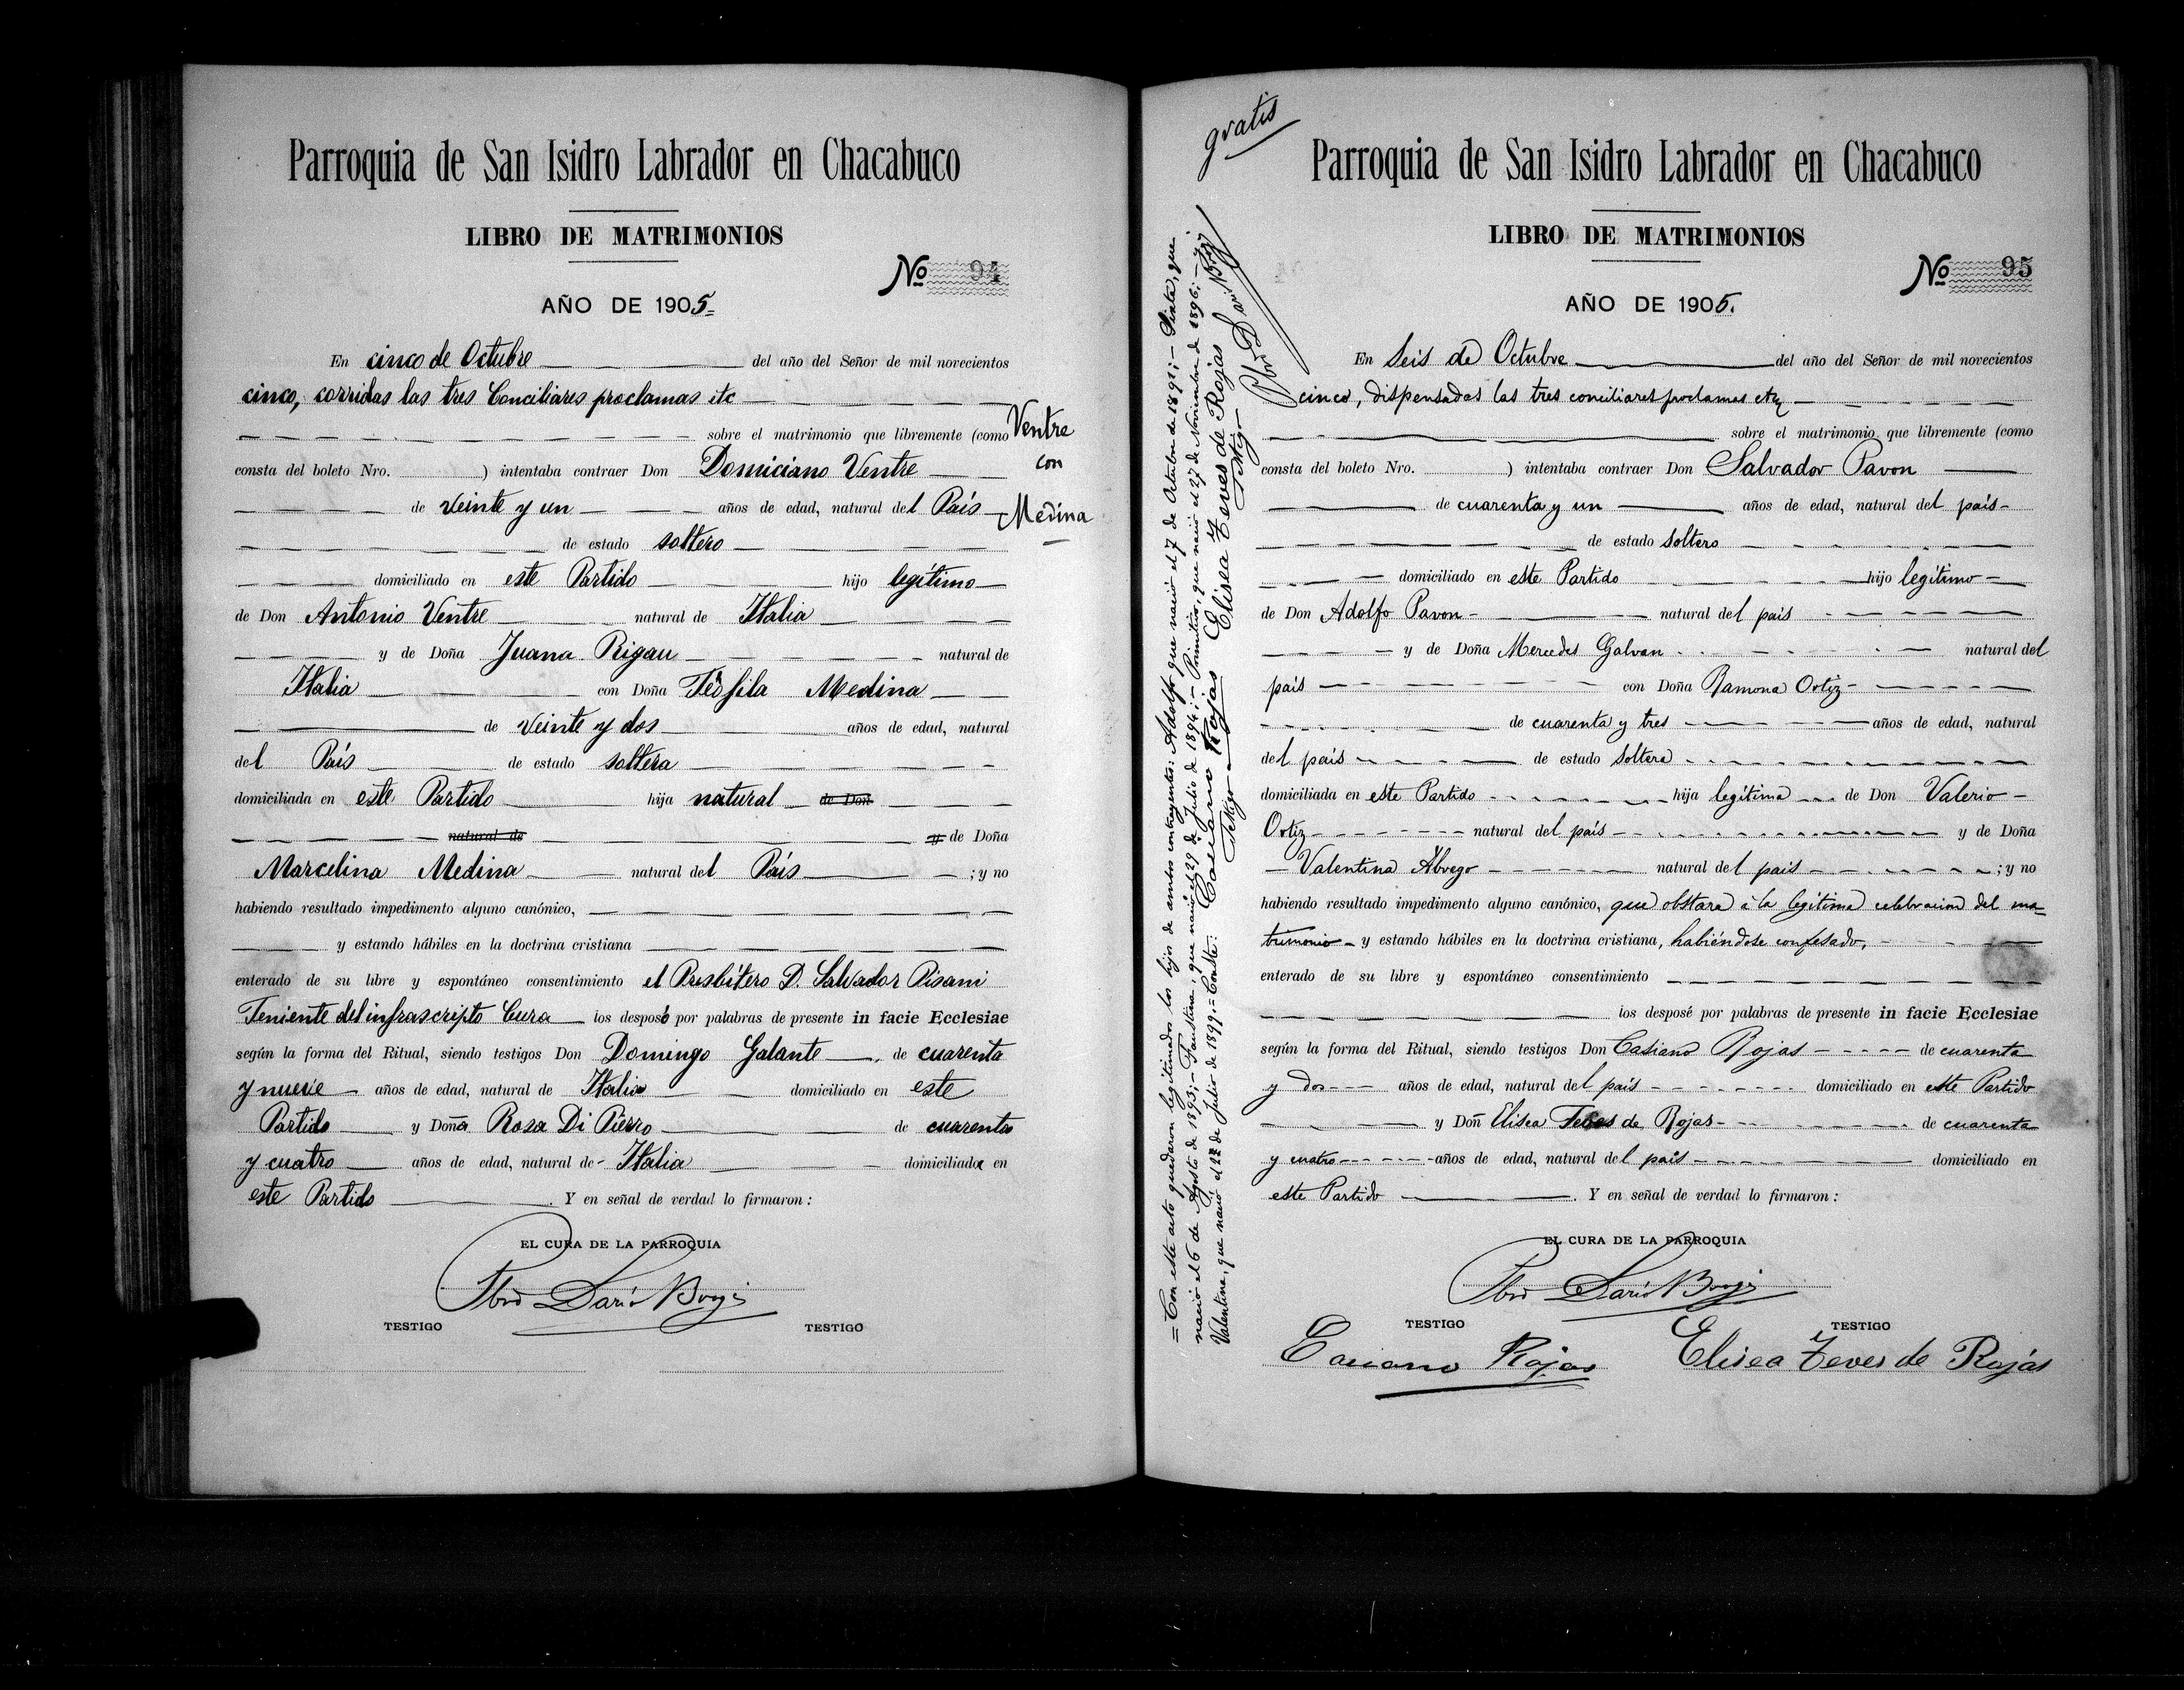 Parroquia de San Isidro Labrador en Chacabuco
LIBRO DE MATRIMONIOS
No 94
AÑO DE 1905
En cinco de Octubre del año del Señor de mil novecientos
cinco, corridas las tres Conciliares proclamas etc
sobre el matrimonio que libremente (como
consta del boleto Nro. ) intentaba contraer Don Domiciano Ventre
de veinte y un años de edad, natural del País
de estado soltero
domiciliado en este Partido hijo legítimo
de Don Antonio Ventre natural de Italia
y de Doña Juana Rigau natural de
Italia con Doña Teófila Medina
de veinte y dos años de edad, natural
del País de estado soltera
domiciliada en este Partido hija natural de Don
natural de y de Doña
Marcelina Medina natural del País ; y no
habiendo resultado impedimento alguno canónico,
y estando hábiles en la doctrina cristiana
enterado de su libre y espontáneo consentimiento el Presbítero D. Salvador Pisani
Teniente del infrascripto Cura los desposó por palabras de presente in facie Ecclesiae
según la forma del Ritual, siendo testigos Don Domingo Galante de cuarenta
y nueve años de edad, natural de Italia domiciliado en este
Partido y Doña Rosa Di Pierro de cuarenta
y cuatro años de edad, natural de Italia domiciliada en
este Partido . Y en señal de verdad lo firmaron:
EL CURA DE LA PARROQUIA
Pbro Darío Broggi
TESTIGO TESTIGO
Ventre
con
Medina
gratis
Parroquia de San Isidro Labrador en Chacabuco
LIBRO DE MATRIMONIOS
No 95
AÑO DE 1905.
En Seis de Octubre del año del Señor de mil novecientos
cinco, dispensadas las tres conciliares proclamas etc
sobre el matrimonio que libremente (como
consta del boleto Nro. ) intentaba contraer Don Salvador Pavon
de cuarenta y un años de edad, natural del país
de estado soltero
domiciliado en este Partido hijo legítimo
de Don Adolfo Pavon natural del país
y de Doña Mercedes Galvan natural del
país con Doña Ramona Ortiz
de cuarenta y tres años de edad, natural
del país de estado soltera
domiciliada en este Partido hija legítima de Don Valerio
Ortiz natural del país y de Doña
Valentina Abrego natural del país ; y no
habiendo resultado impedimento alguno canónico, que obstara á la legítima celebracion del ma=
trimonio y estando hábiles en la doctrina cristiana, habiéndose confesado,
enterado de su libre y espontáneo consentimiento
los desposé por palabras de presente in facie Ecclesiae
según la forma del Ritual, siendo testigos Don Casiano Rojas de cuarenta
y dos años de edad, natural del país domiciliado en este Partido
y Doñ Elisea Teves de Rojas de cuarenta
y cuatro años de edad, natural del país domiciliado en
este Partido . Y en señal de verdad lo firmaron:
EL CURA DE LA PARROQUIA
Pbro Darío Broggi
TESTIGO TESTIGO
Casiano Rojas Elisea Teves de Rojas
= Con este acto quedaron legitimados los hijos de ambos contrayentes: Adolfo que nació el 7 de Octubre de 1892; - Sixta, que
nació el 6 de Agosto de 1893; - Faustina, que nació el 29 de Julio de 1894; - Primitivo, que nació el 27 de Noviembre de 1896; - y
Valentina, que nació el 22 de Julio de 1899. = Conste: Casiano Rojas Elisea Teves de Rojas
Testigo Testigo
Pbro Darío Broggi